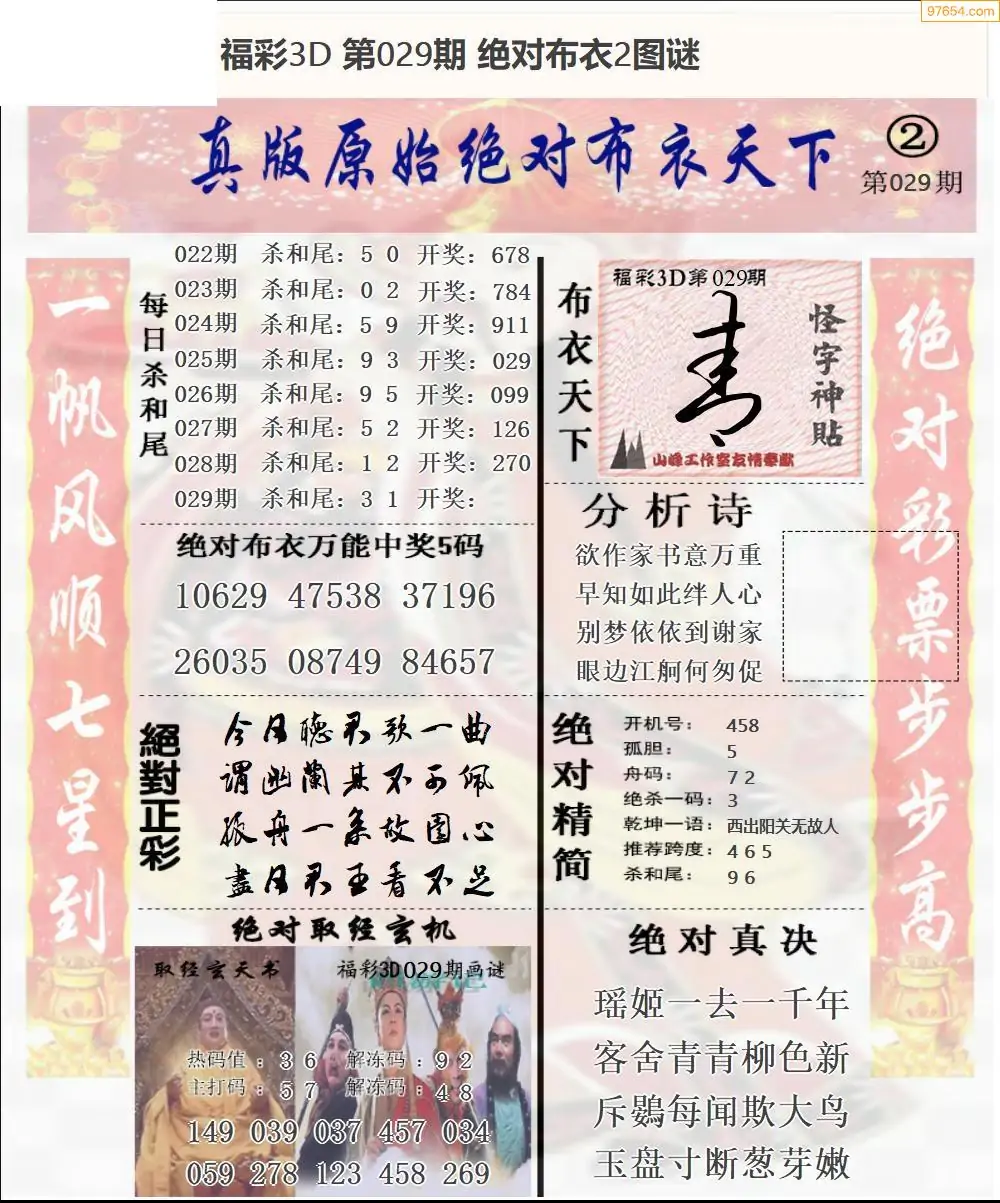 97654.com
福彩3D 第029期 绝对布衣2图谜
真版原始绝对布衣天下
②
第029期
一帆风顺七星到
每日杀和尾
022期 杀和尾：5 0 开奖：678
023期 杀和尾：0 2 开奖：784
024期 杀和尾：5 9 开奖：911
025期 杀和尾：9 3 开奖：029
026期 杀和尾：9 5 开奖：099
027期 杀和尾：5 2 开奖：126
028期 杀和尾：1 2 开奖：270
029期 杀和尾：3 1 开奖：
绝对布衣万能中奖5码
10629 47538 37196
26035 08749 84657
絕對正彩
今日聽君歌一曲
謂幽蘭其不可佩
孤舟一系故園心
盡日君王看不足
绝对取经玄机
取经玄天书
福彩3D029期画谜
热码值：3 6 解冻码：9 2
主打码：5 7 解冻码：4 8
149 039 037 457 034
059 278 123 458 269
布衣天下
福彩3D第029期
怪字神贴
山峰工作室友情奉献
分析诗
欲作家书意万重
早知如此绊人心
别梦依依到谢家
眼边江舸何匆促
绝对精简
开机号：458
孤胆：5
舟码：7 2
绝杀一码：3
乾坤一语：西出阳关无故人
推荐跨度：4 6 5
杀和尾：9 6
绝对真决
瑶姬一去一千年
客舍青青柳色新
斥鷃每闻欺大鸟
玉盘寸断葱芽嫩
绝对彩票步步高